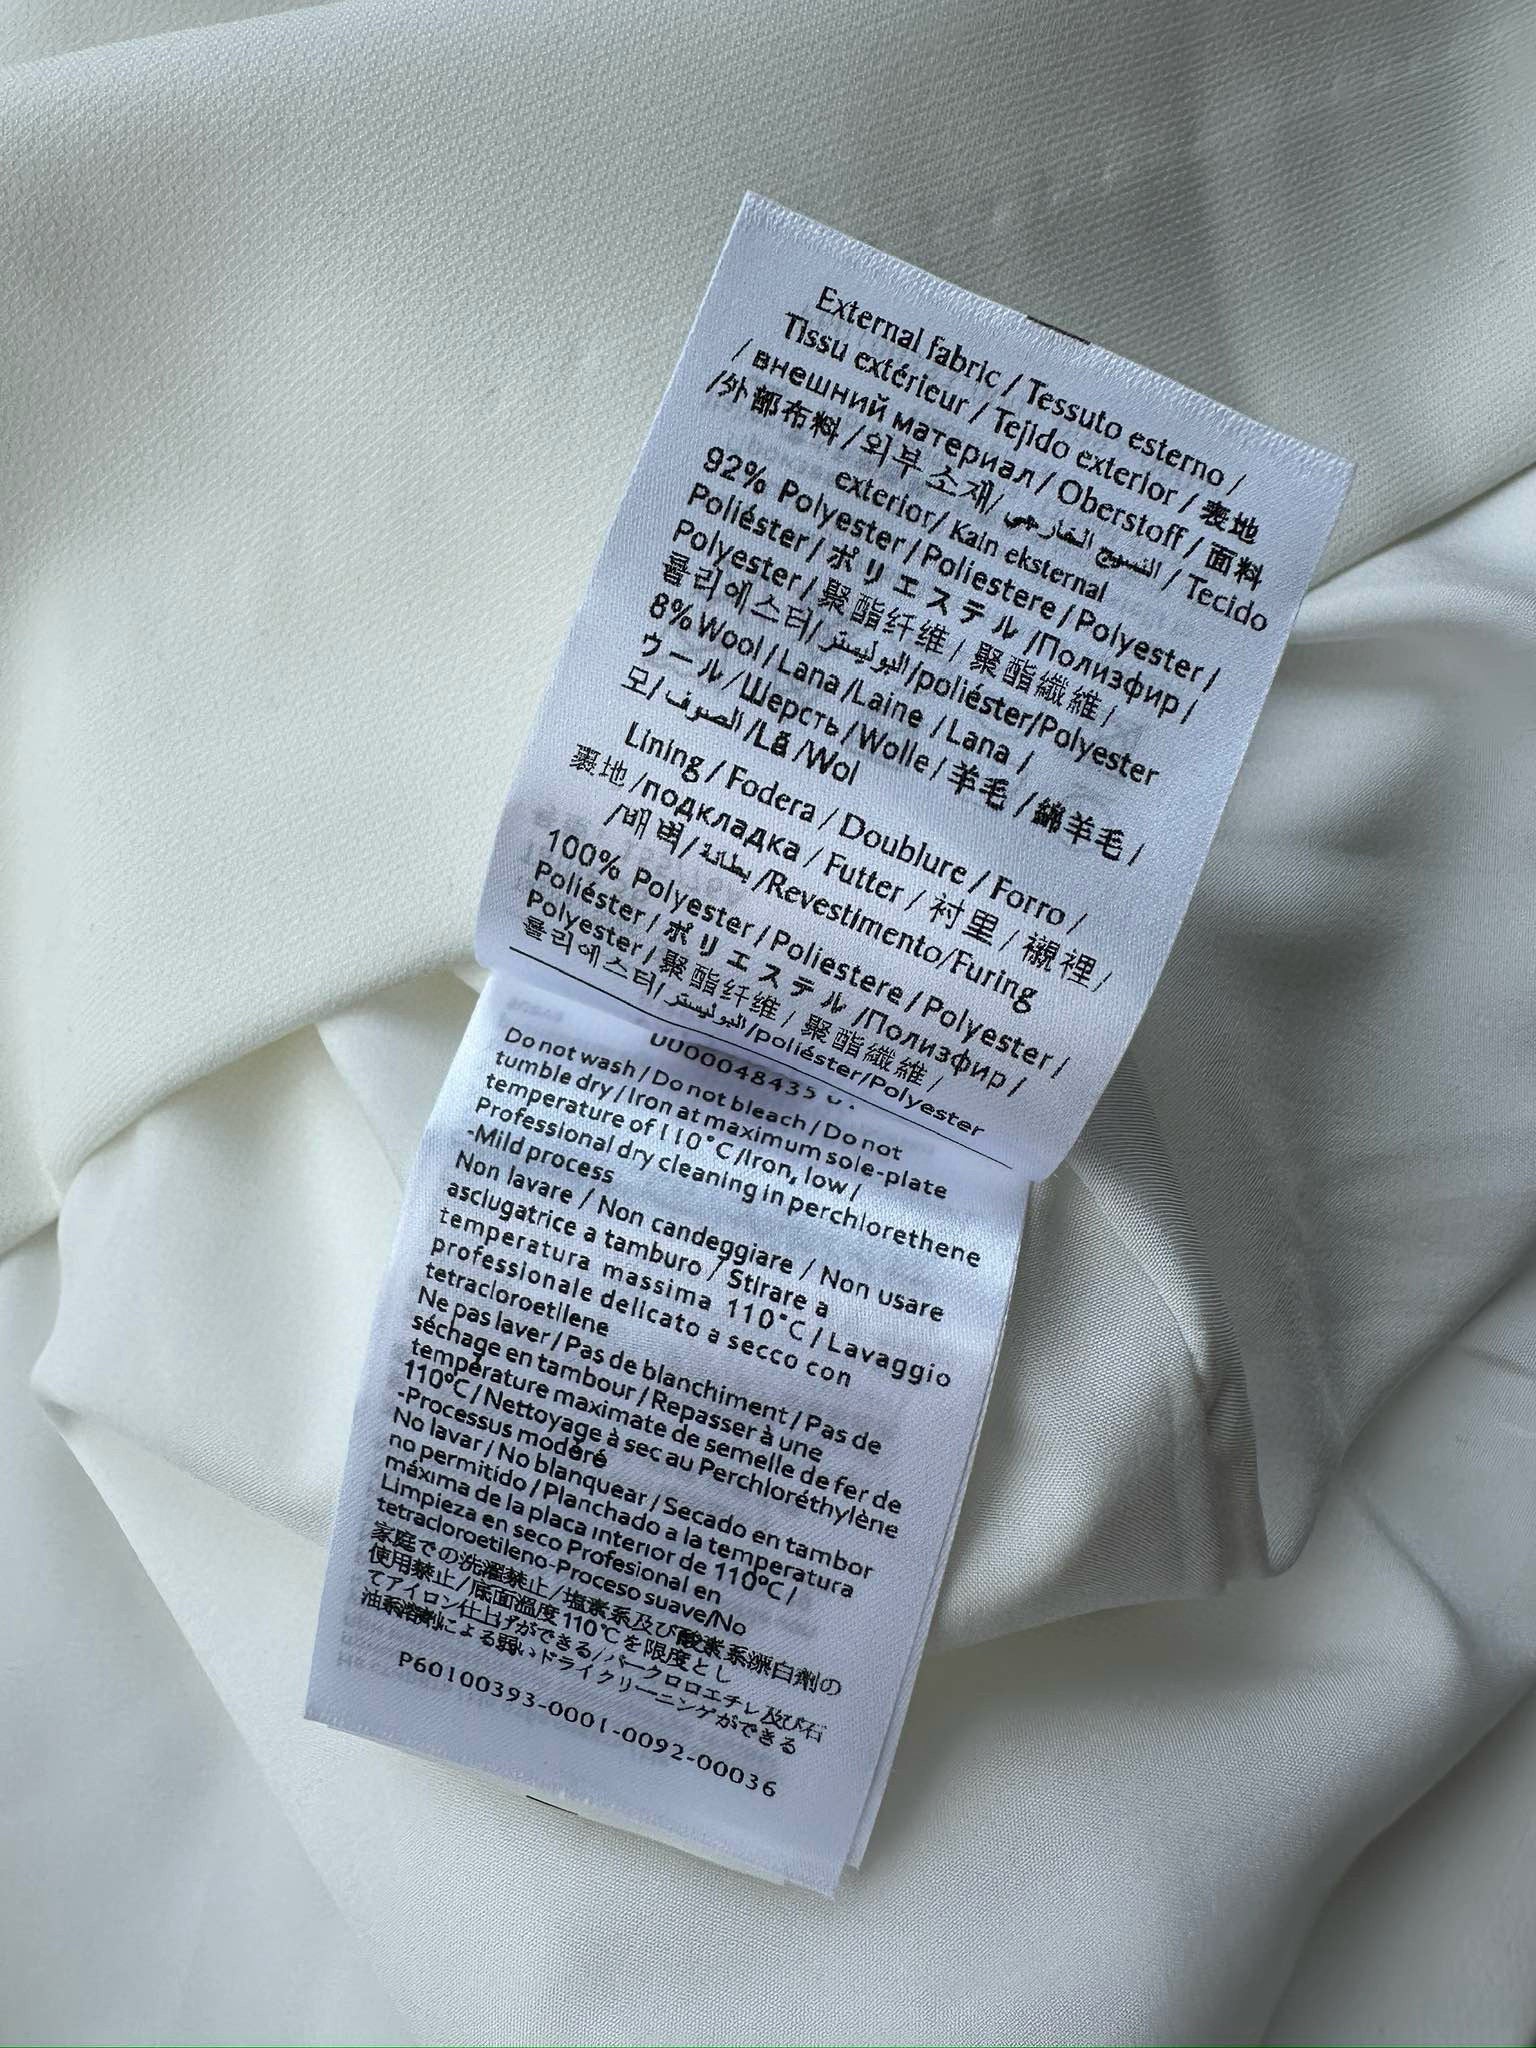 External fabric / Tessuto esterno /
Tissu extérieur / Tejido exterior / 表地
/ внешний материал / Oberstoff / 面料
/外部布料 / 외부 소재/ النسيج الخارجي / Tecido
exterior/ Kain eksternal
92% Polyester / Poliestere / Polyester /
Poliéster / ポリエステル /Полиэфир /
Polyester / 聚酯纤维 / 聚酯纖維 /
폴리에스터/ البوليستر/poliéster/Polyester
8% Wool / Lana /Laine / Lana /
ウール /Шерсть /Wolle / 羊毛 / 綿羊毛 /
모/ الصوف /Lã /Wol
Lining / Fodera / Doublure / Forro /
裏地 /подкладка / Futter / 衬里 / 襯裡 /
/배 벽/ بطانة /Revestimento/Furing
100% Polyester / Poliestere / Polyester /
Poliéster / ポリエステル /Полиэфир /
Polyester / 聚酯纤维 / 聚酯纖維 /
폴리에스터/ البوليستر/poliéster/Polyester
0000048435
Do not wash / Do not bleach / Do not
tumble dry / Iron at maximum sole-plate
temperature of 110°C /Iron, low /
Professional dry cleaning in perchlorethene
-Mild process
Non lavare / Non candeggiare / Non usare
asciugatrice a tamburo / Stirare a
temperatura massima 110°C / Lavaggio
professionale delicato a secco con
tetracloroetilene
Ne pas laver / Pas de blanchiment / Pas de
séchage en tambour / Repasser à une
température maximate de semelle de fer de
110ºC / Nettoyage à sec au Perchloréthylène
-Processus modéré
No lavar / No blanquear / Secado en tambor
no permitido / Planchado a la temperatura
máxima de la placa interior de 110ºC /
Limpieza en seco Profesional en
tetracloroetileno-Proceso suave/No
家庭での洗濯禁止/塩素系及び酸素系漂白剤の
使用禁止/底面温度110℃を限度とし
てアイロン仕上げができる/パークロロエチレン及び石
油系溶剤による弱いドライクリーニングができる
P60100393-0001-0092-00036